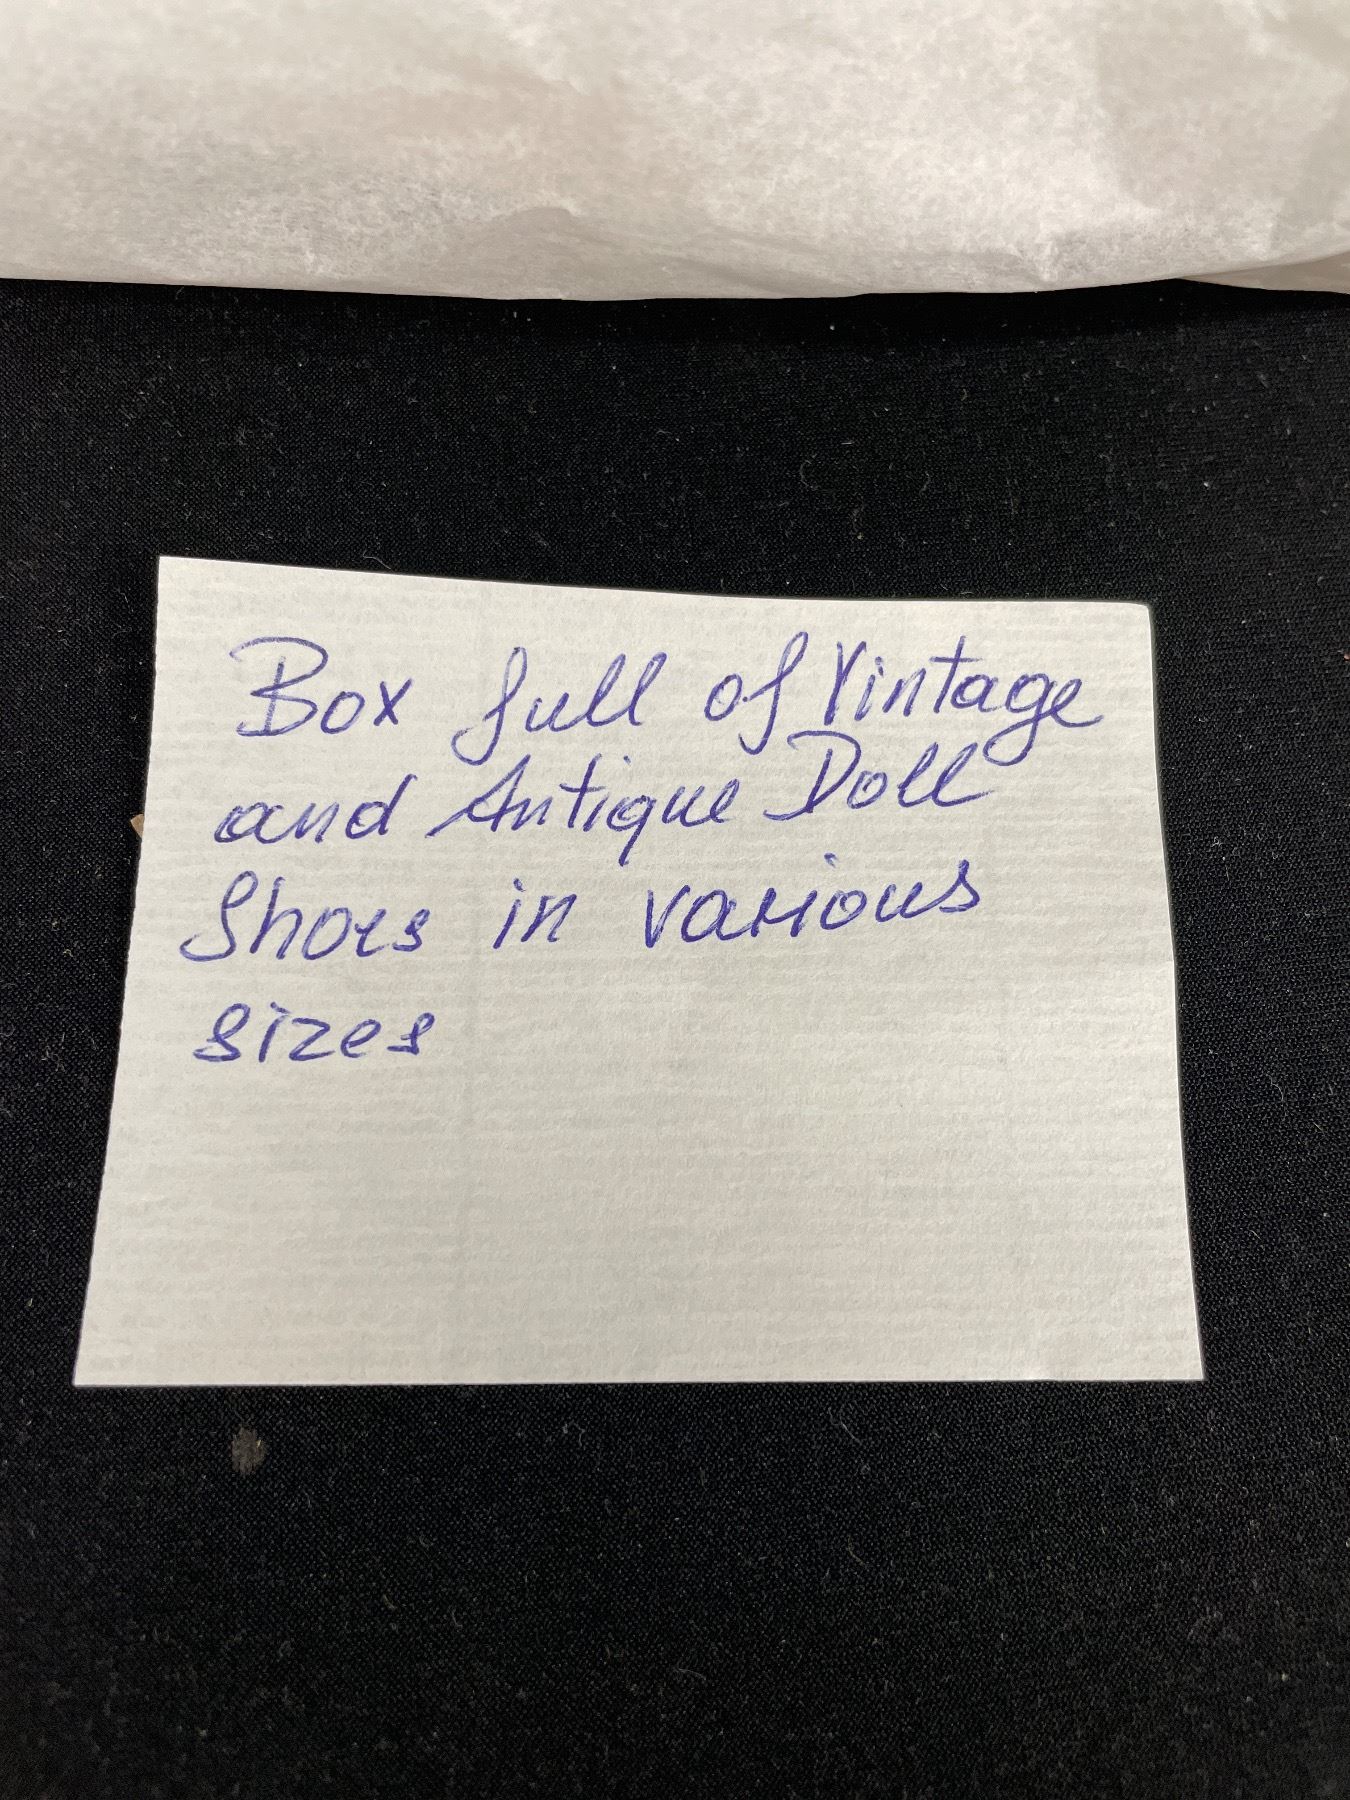 Box full of Vintage
and Antique Doll
Shoes in various
sizes